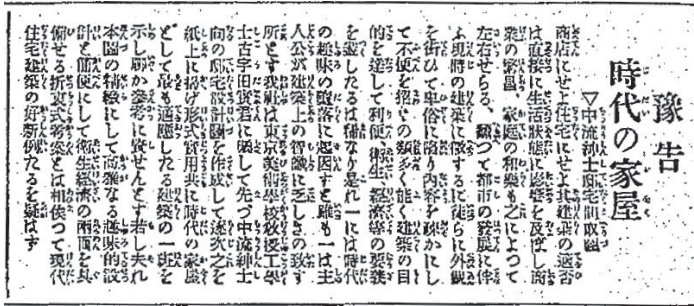 豫告
時代の家屋
▽中流紳士邸宅間取圖
商店にせよ住宅にせよ其建築の適否
は直接に生活狀態に影響を及ぼし商
業の繁昌、家庭の和樂も之によつて
左右せらる、飜つて都市の發展に伴
ふ現時の建築に徴するに徒らに外觀
を衒ひて卑俗に陷り内容を疎かにし
て不便を招くの類多く能く建築の目
的を達して利便、衛生、經濟等の要義
を盡したるは稀なり是れ一には時代
の趣味の墮落に起因すと雖も一は主
人公が建築上の智識に乏しきの致す
所とす我社は東京美術學校敎授工學
士古宇田實君に囑して先づ中流紳士
向の邸宅設計圖を作成して逐次之を
紙上に揭げ形式實用共に時代の家屋
として最も適應したる建築の一班を
示し聊か參考に資せんとす若し夫れ
本圖の精緻にして高雅なる趣味的設
計と簡便にして衛生經濟の兩面を具
備せる折衷式考案とは相俟つて現代
住宅建築の好新例たるを疑はず